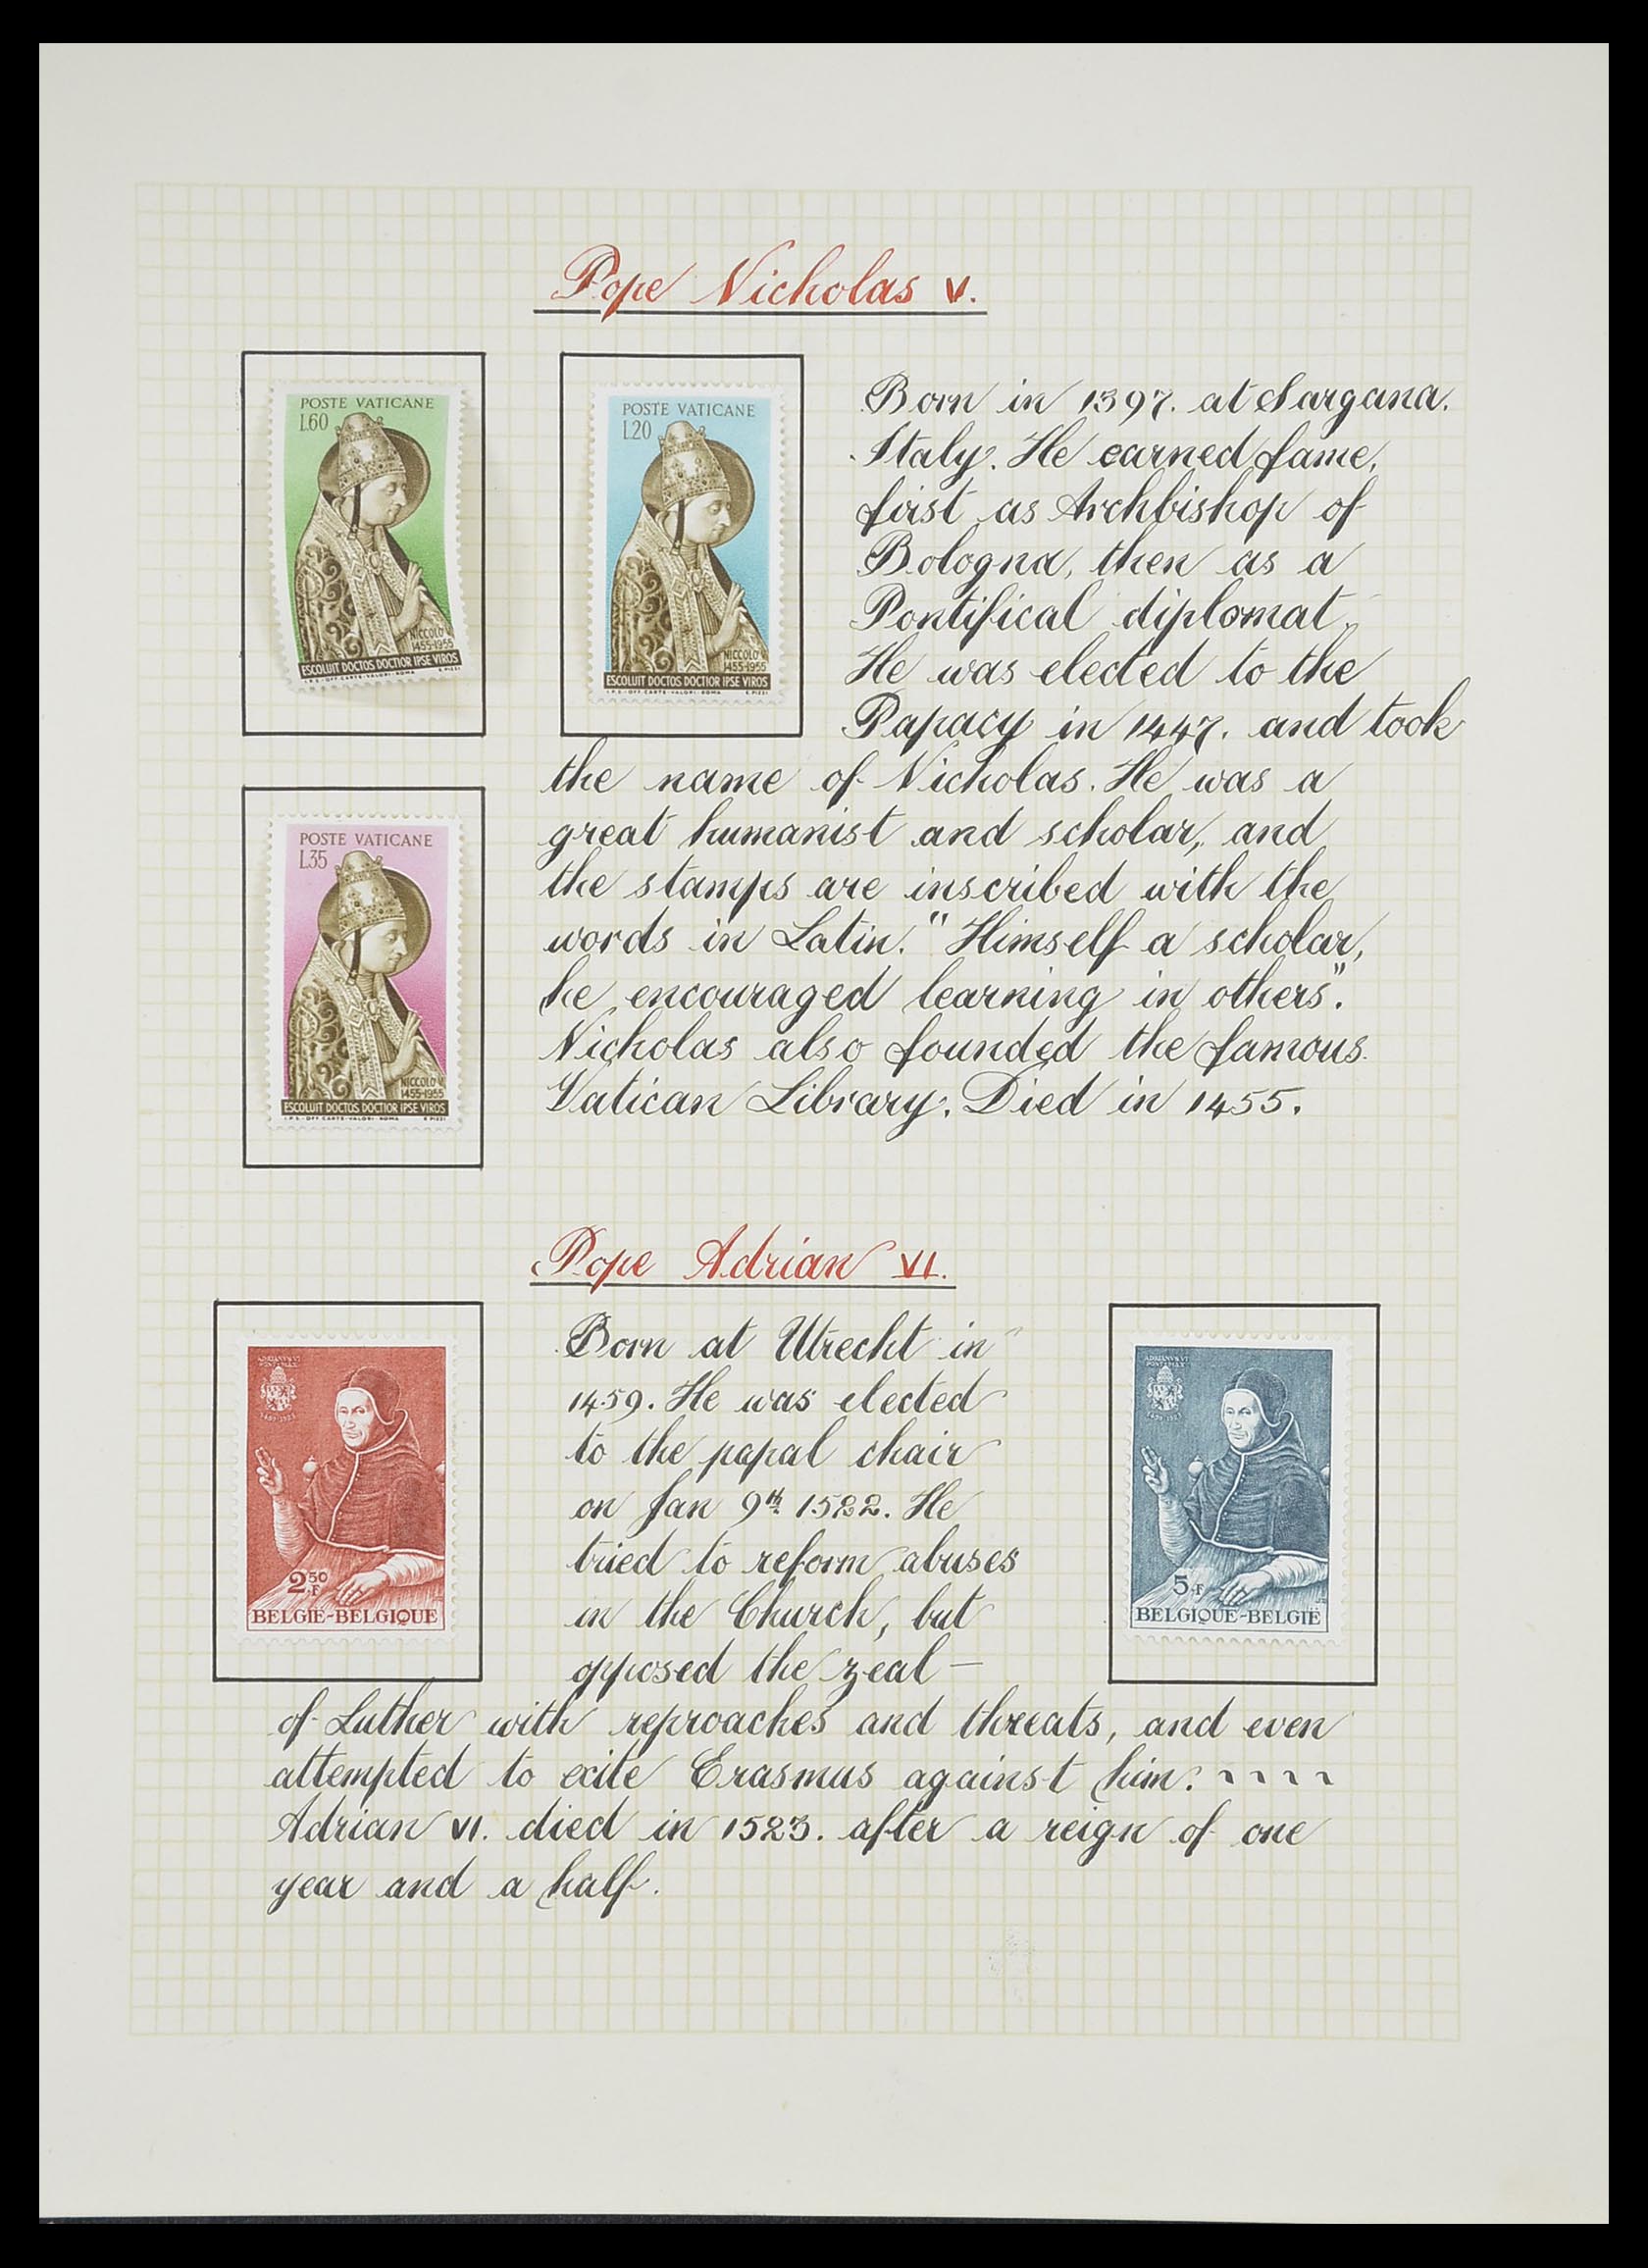 Pope Nicholas V.
POSTE VATICANE
L.60
NICCOLO V
1455-1955
ESCOLUIT DOCTOS DOCTIOR IPSE VIROS
I.P.S.-OFF. CARTE-VALORI-ROMA E.PIZZI
POSTE VATICANE
L.20
NICCOLO V
1455-1955
ESCOLUIT DOCTOS DOCTIOR IPSE VIROS
I.P.S.-OFF. CARTE-VALORI-ROMA E.PIZZI
Born in 1397. at Sargana.
Italy. He earned fame,
first as Archbishop of
Bologna, then as a
Pontifical diplomat.
He was elected to the
Papacy in 1447. and took
the name of Nicholas. He was a
great humanist and scholar, and
the stamps are inscribed with the
words in Latin. "Himself a scholar,
he encouraged learning in others".
Nicholas also founded the famous
Vatican Library. Died in 1455.
POSTE VATICANE
L.35
NICCOLO V
1455-1955
ESCOLUIT DOCTOS DOCTIOR IPSE VIROS
I.P.S.-OFF. CARTE-VALORI-ROMA E.PIZZI
Pope Adrian VI.
ADRIANVS VI
PONT. MAX.
1459-1523
2.50 F
BELGIË-BELGIQUE
Born at Utrecht in
1459. He was elected
to the papal chair
on Jan 9th 1522. He
tried to reform abuses
in the Church, but
opposed the zeal —
of Luther with reproaches and threats, and even
attempted to exite Erasmus against him.
Adrian VI. died in 1523. after a reign of one
year and a half.
ADRIANVS VI
PONT. MAX.
1459-1523
5 F
BELGIQUE-BELGIË